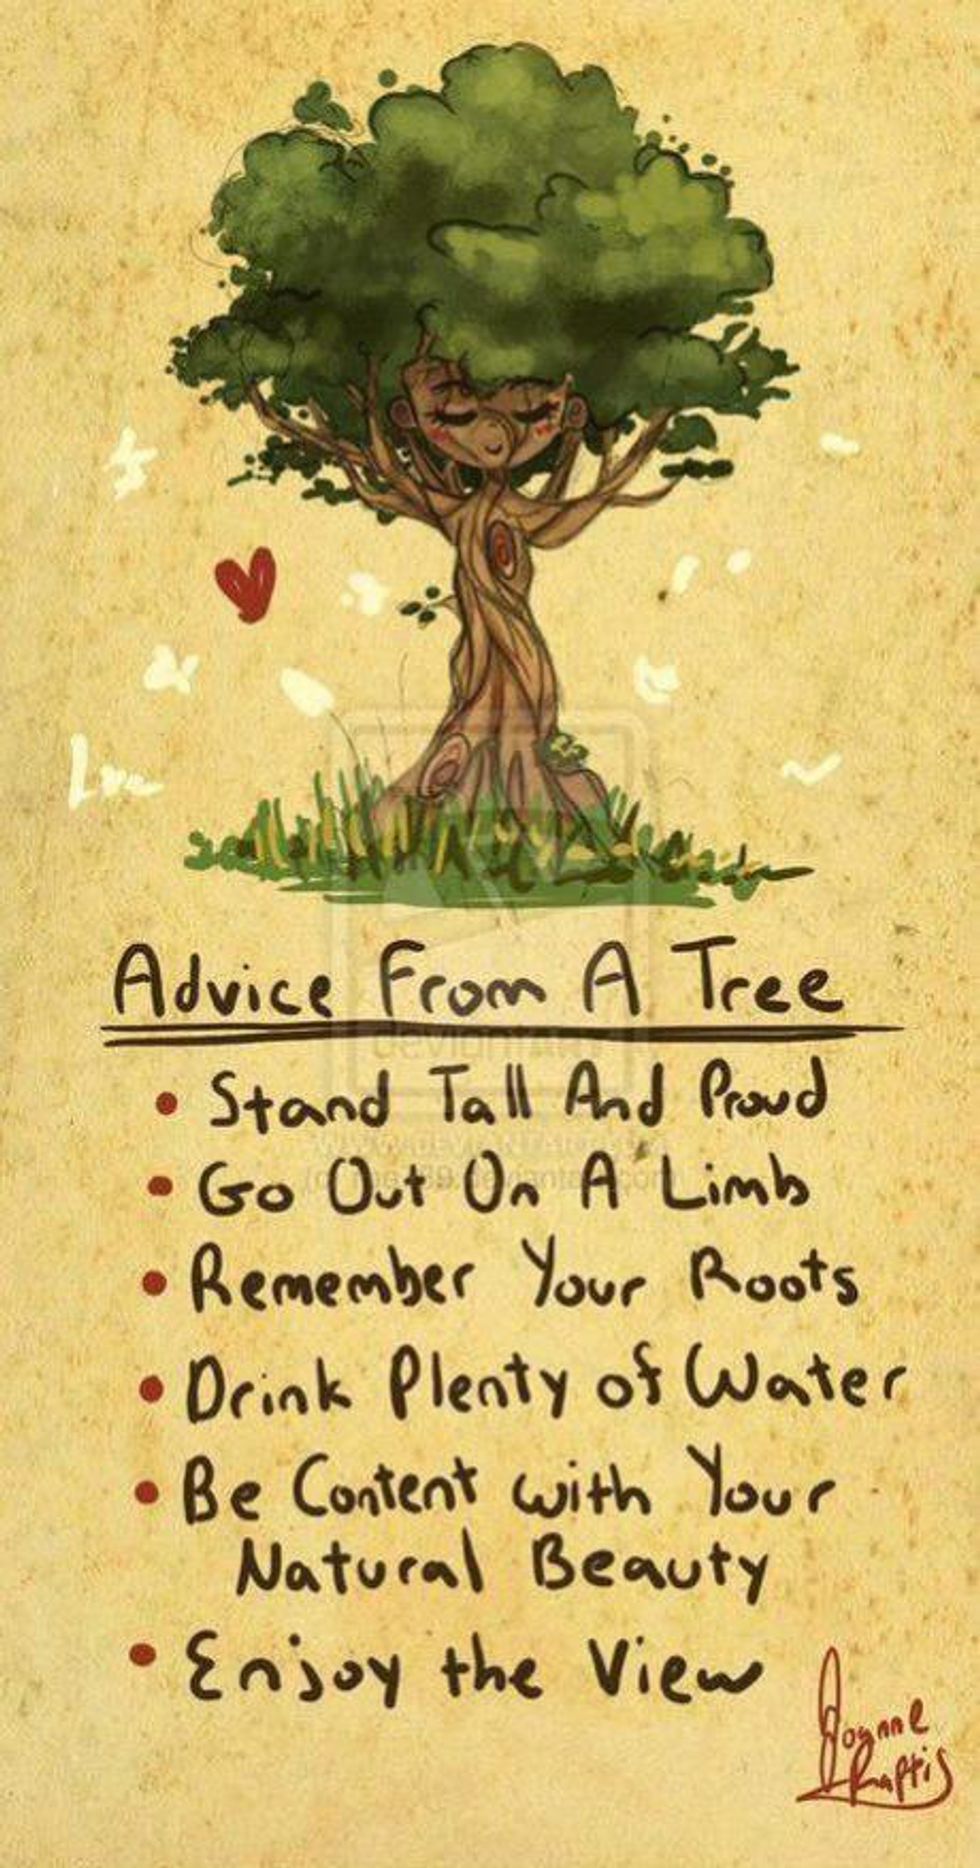 Advice From A Tree
• Stand Tall And Proud
• Go Out On A Limb
• Remember Your Roots
• Drink Plenty of Water
• Be Content with Your
Natural Beauty
• Enjoy the View
Joanne
Raftis